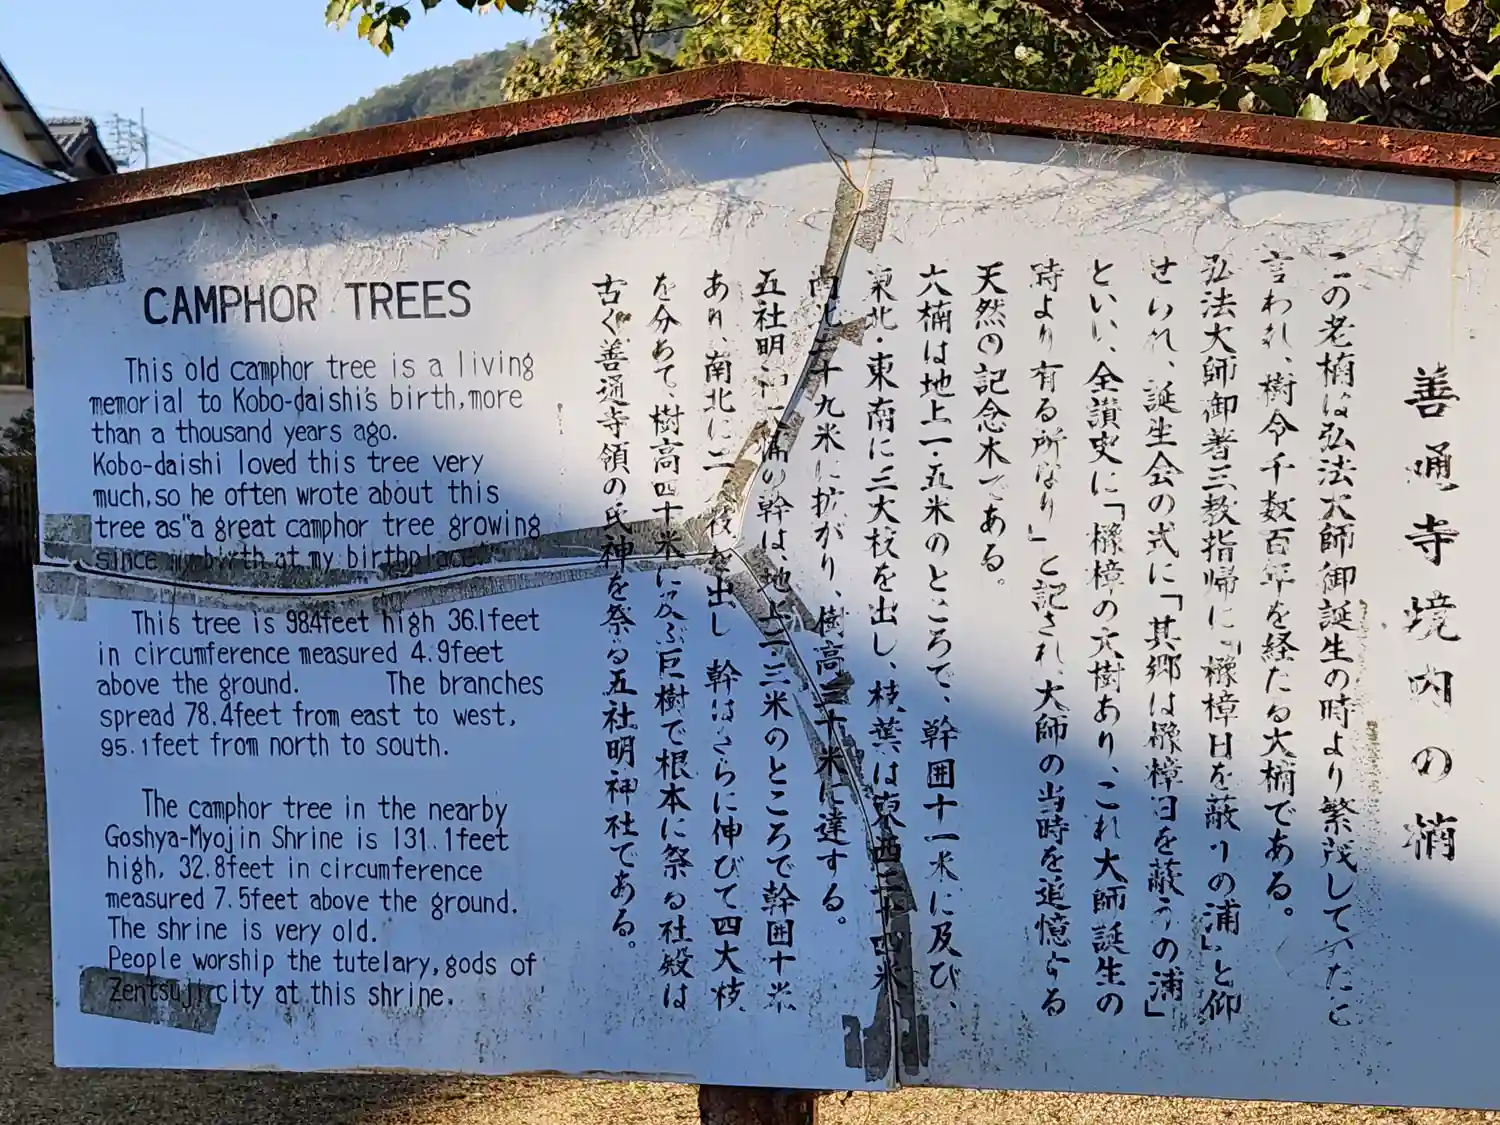 CAMPHOR TREES
This old camphor tree is a living
memorial to Kobo-daishi's birth, more
than a thousand years ago.
Kobo-daishi loved this tree very
much, so he often wrote about this
tree as "a great camphor tree growing
since my birth at my birthplace"
This tree is 98.4feet high 36.1feet
in circumference measured 4.9feet
above the ground. The branches
spread 78.4feet from east to west,
95.1feet from north to south.
The camphor tree in the nearby
Goshya-Myojin Shrine is 131.1feet
high, 32.8feet in circumference
measured 7.5feet above the ground.
The shrine is very old.
People worship the tutelary, gods of
Zentsuji city at this shrine.
善通寺境内の楠
この老楠は弘法大師御誕生の時より繁茂していたと
言われ、樹令千数百年を経たる大楠である。
弘法大師御著三教指帰に「櫲樟日を蔽うの浦」と仰
せられ、誕生会の式に「其郷は櫲樟日を蔽うの浦」
といい、全讃史に「櫲樟の大樹あり、これ大師誕生の
時より有る所なり」と記され、大師の当時を追憶する
天然の記念木である。
六楠は地上一・五米のところで、幹囲十一米に及び、
東北・東南に三大枝を出し、枝葉は東西二十四米
南北二十九米に拡がり、樹高三十米に達する。
五社明神楠の幹は、地上二・三米のところで幹囲十米
あり、南北に二枝を出し 幹はさらに伸びて四大枝
を分あて、樹高四十米に及ぶ巨樹で根本に祭る社殿は
古く善通寺領の氏神を祭る五社明神社である。